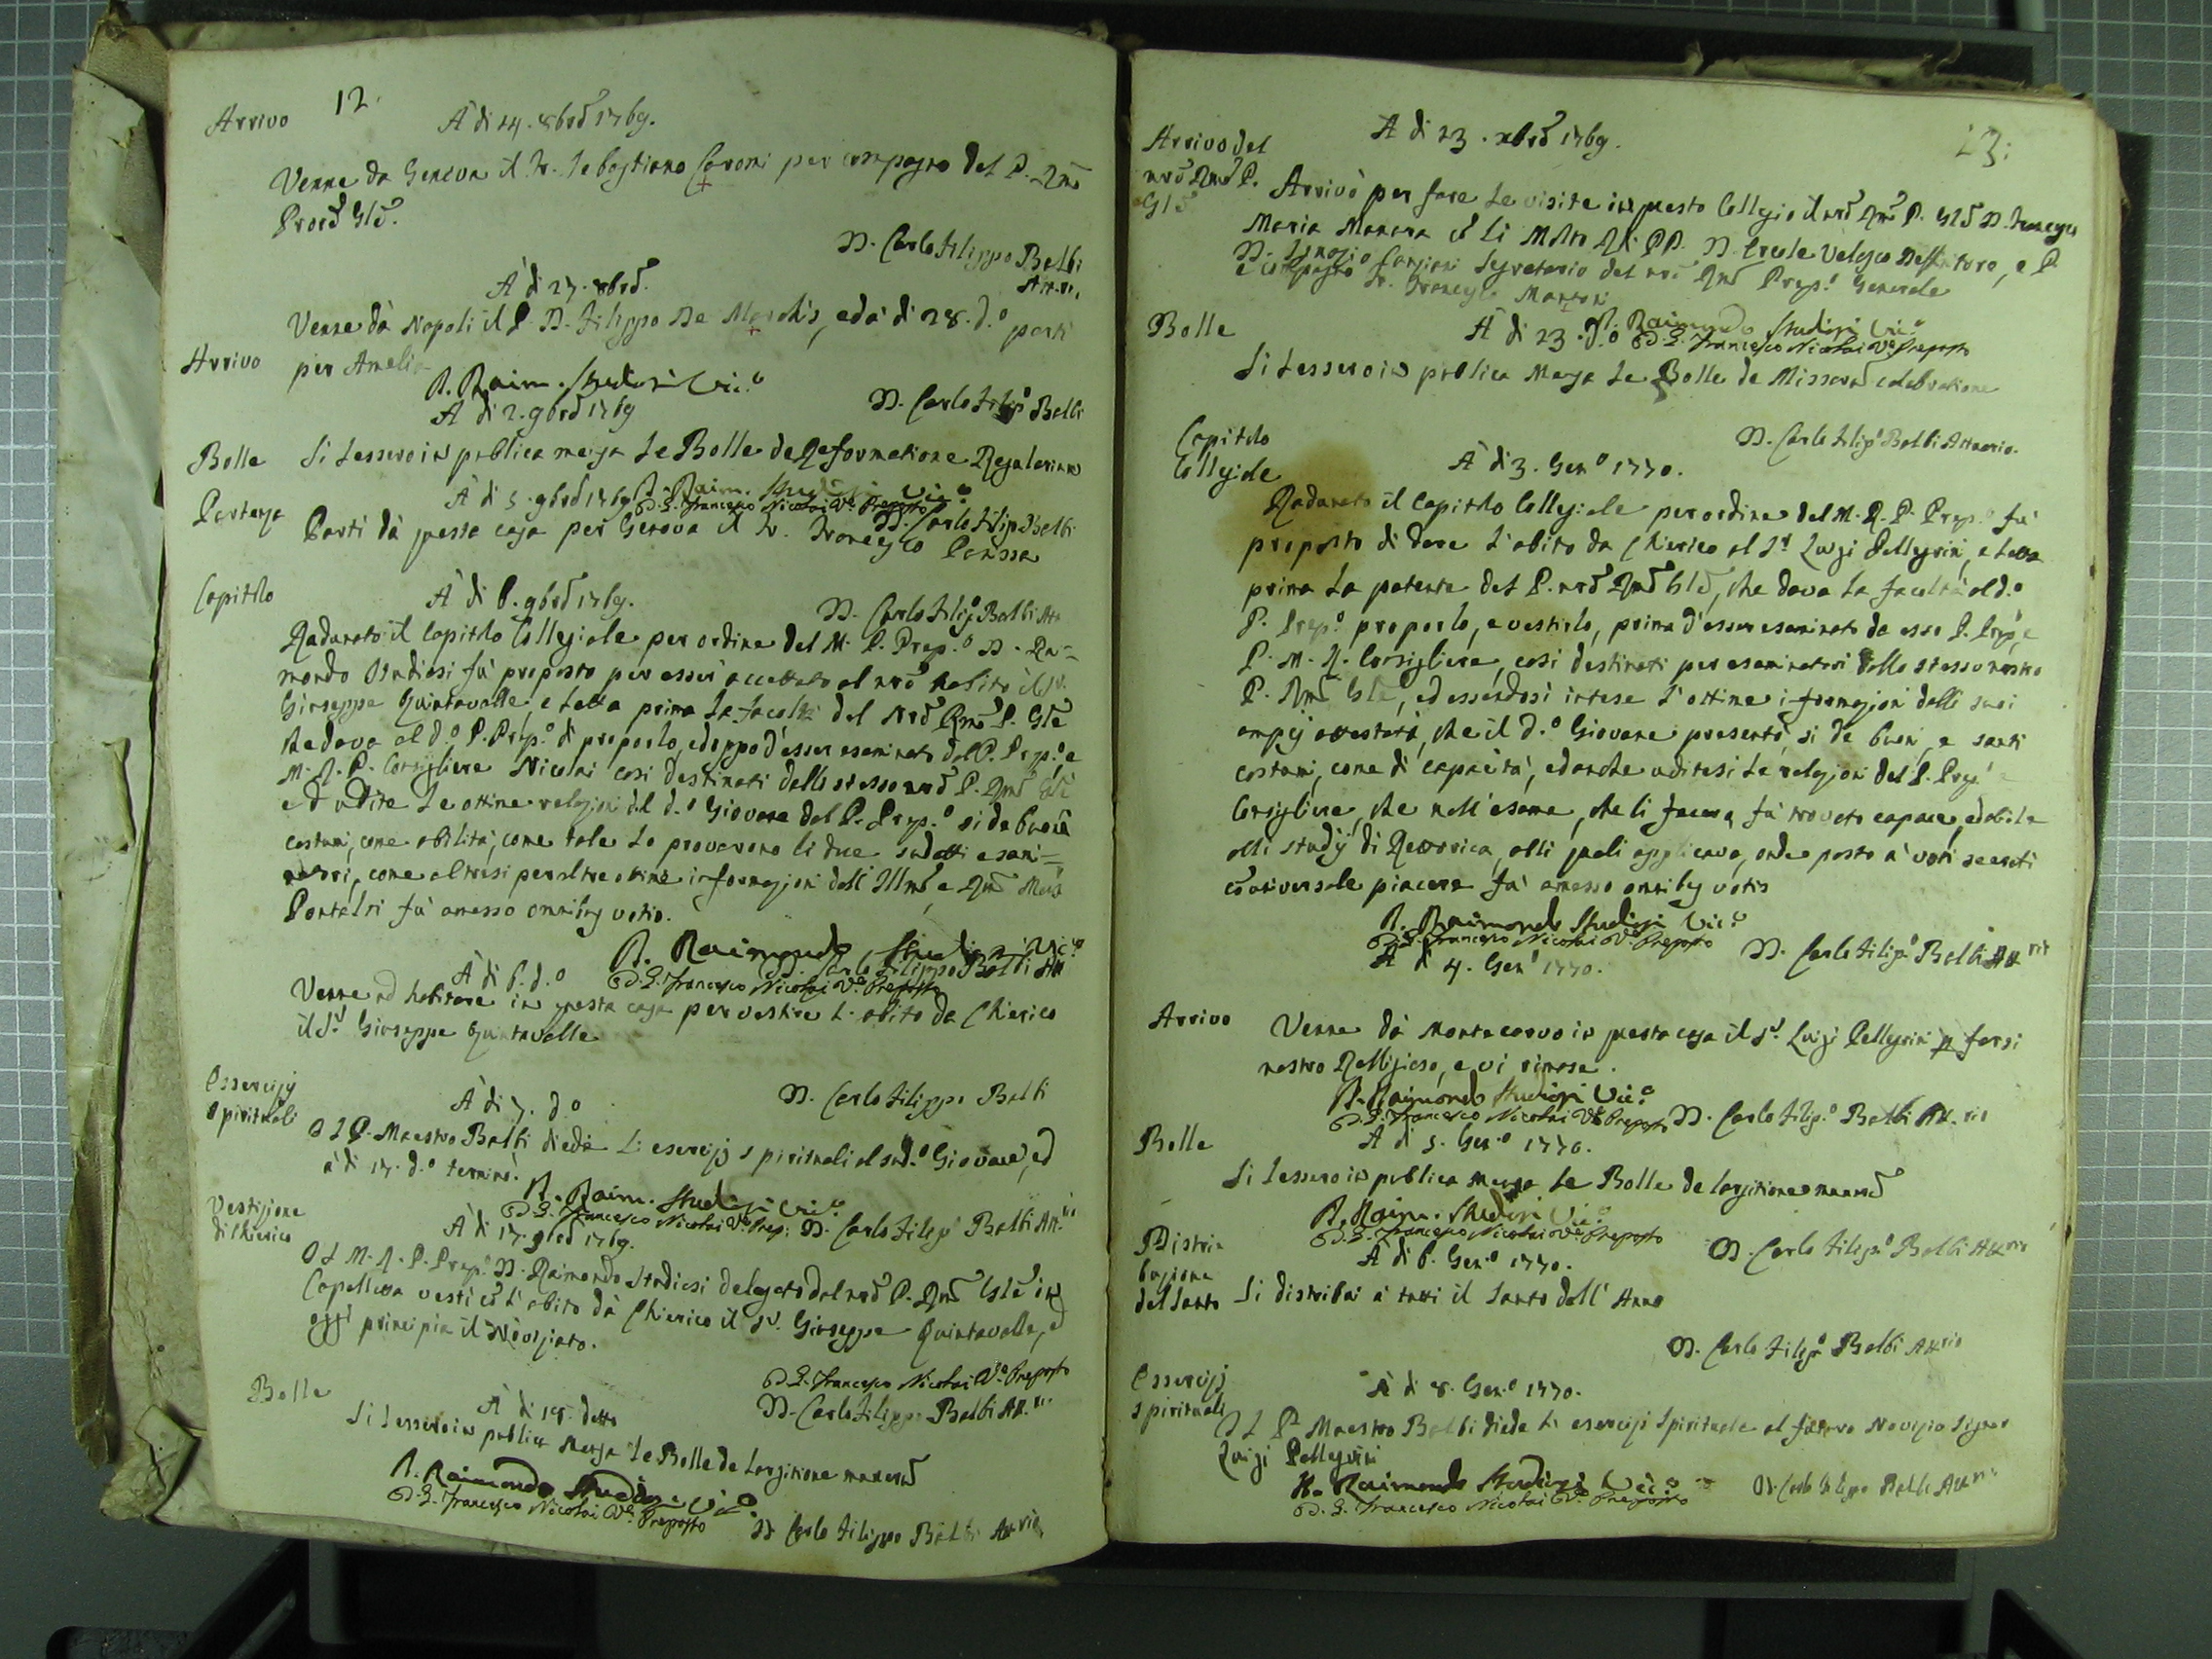 12.
Arrivo
A di 24. 8brẽ 1769.
Venne da Genova il fr. Sebastiano Caroni per compagno del P. Rmõ
Procẽ Glẽ.
D. Carlo Filippo Balbi
Att.rio
A di 27. 8brẽ.
Arrivo
Venne dà Napoli il P. D. Filippo De Marchis, ed à di 28. d.o partì
per Amelia
R. Raim. Studiosi Vic.o
D. Carlo Filip.o Balbi
A di 2. 9brẽ 1769
Bolle
Si lessero in publica mensa le Bolle de Reformatione Regularium
R. Raim. Studiosi Vic.o
D. G. Francesco Nicolai V.e Preposto
D. Carlo Filip.o Balbi
Partenza
A di 5. 9brẽ 1769
Partì dà questa casa per Genova il fr. Francesco Parissa
Capitolo
A di 6. 9brẽ 1769.
D. Carlo Filip.o Balbi Att.
Radunato il Capitolo Collegiale per ordine del M. P. Prep.o D. Rai=
mondo Studiosi fù proposto per esser accettato al nrõ habito il Sr.
Giuseppe Quintavalle e letta prima la facoltà del Nrõ Rmõ P. Glẽ
che dava al d.o P. Prep.o di proporlo, e doppo d'esser esaminato dal P. Prep.o e
M. R. P. Consigliere Nicolai così destinati dallo stesso nrõ P. Rmõ Glẽ
ed udite le ottime relazioni del d.o Giovane dal P. Prep.o si de buoni
costumi, come abilità, come tale lo provarono li due sudetti esami=
natori, come altresi per altre ottime informazioni dell' Illmõ, e Rmõ Mons.
Pontalti fù amesso omnibus votis.
R. Raimondo Studiosi Vic.o
D. Carlo Filippo Balbi Att.
D. G. Francesco Nicolai V.e Preposto
A di 6. d.o
Venne ad habitare in questa casa per vestire l'abito da Chierico
il S.r Giuseppe Quintavalle
D. Carlo Filippo Balbi
Essercizj
spirituali
A di 7. d.o
Il P. Maestro Balbi diede li esercizj spirituali al sud.o Giovane, ed
à di 17. d.o terminò.
R. Raim. Studiosi Vic.o
D. G. Francesco Nicolai V.e Prep.
D. Carlo Filip.o Balbi Att.rio
Vestizione
di Chierico
A di 17. 9brẽ 1769.
Il M. R. P. Prep.o D. Raimondo Studiosi delegato dal nrõ P. Rmõ Glẽ in
Capelletta vestì cõ l'abito dà Chierico il Sr. Giuseppe Quintavalle, ed
oggi principia il Noviziato.
D. G. Francesco Nicolai V.e Preposto
D. Carlo Filippo Balbi Att.rio
Bolle
A di 18. detto
Si lessero in publica mensa le Bolle de largitione munerũ
R. Raimondo Studiosi Vic.o
D. G. Francesco Nicolai V.e Preposto
D. Carlo Filippo Balbi Att.rio
23.
Arrivo del
nrõ Rmõ P.
Glẽ
A di 23. xbrẽ 1769.
Arrivò per fare la visita in questo Collegio il nrõ Rmõ P. Glẽ D. Francesco
Maria Manara cõ li Molto R.di PP. D. Ercole Velasco Deffinitore, e P.
D. Ignazio Canziani Segretario del nrõ Rmõ Prep.o Generale
e compagno fr. Francesco Mantoni
R. Raimondo Studiosi Vic.o
D. G. Francesco Nicolai V.e Preposto
Bolle
A di 23. d.o
Si lessero in publica mensa le Bolle de Missarũ celebratione
D. Carlo Filip.o Balbi Attuario.
Capitolo
Collegiale
A di 3. Gen.o 1770.
Radunato il Capitolo Collegiale per ordine del M. R. P. Prep.o fù
proposto di dare l'abito da Chierico al S.r Luigi Pellegrini, e letta
prima la patente del P. nrõ Rmõ Glẽ, che dava la facoltà al d.o
P. Prep.o proporlo, e vestirlo, prima d'esser esaminato da esso P. Prep.o, e
P. M. R. Consigliere, così destinati per esaminatori dallo stesso nostro
P. Rmõ Glẽ, ed essendosi intese l'ottime informazioni dalli suoi
ampij attestati, che il d.o Giovane presentò, si de buoni, e santi
costumi, come di capacità, ed anche uditesi le relazioni del P. Prep.o
Consigliere, che nell'esame, che li fecero, fù trovato capace, ed abile
alli studij di Rettorica, alli quali applicava, onde posto à voti secreti
cõ universale piacere fù amesso omnibus votis
R. Raimondo Studiosi Vic.o
D. G. Francesco Nicolai V.e Preposto
D. Carlo Filip.o Balbi Att.rio
A di 4. Gen.o 1770.
Arrivo
Venne dà Montecorvo in questa casa il S.r Luigi Pellegrini p farsi
nostro Relligioso, e vi rimase.
R. Raimondo Studiosi Vic.o
D. G. Francesco Nicolai V.e Preposto
D. Carlo Filip.o Balbi Att.rio
Bolle
A di 5. Gen.o 1770.
Si lessero in publica mensa le Bolle de largitione munerũ
R. Raim. Studiosi Vic.o
D. G. Francesco Nicolai V.e Preposto
D. Carlo Filip.o Balbi Att.rio
Distri=
buzione
del Santo
A di 6. Gen.o 1770.
Si distribuì à tutti il Santo dell' Anno
D. Carlo Filip.o Balbi Att.rio
Essercizj
spirituali
A di 8. Gen.o 1770.
Il P. Maestro Balbi diede li esercizj Spirituale al futuro Novizio Signor
Luigi Pellegrini
R. Raimondo Studiosi Vic.o
D. G. Francesco Nicolai V.e Preposto
D. Carlo Filippo Balbi Att.rio